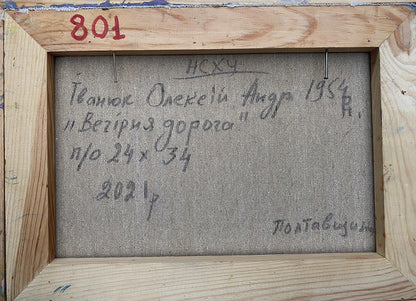 801
НСХУ
Іванюк Олексій Андр 1954 р.н.
"Вечірня дорога"
п/о 24 х 34
2021 р
Полтавщина